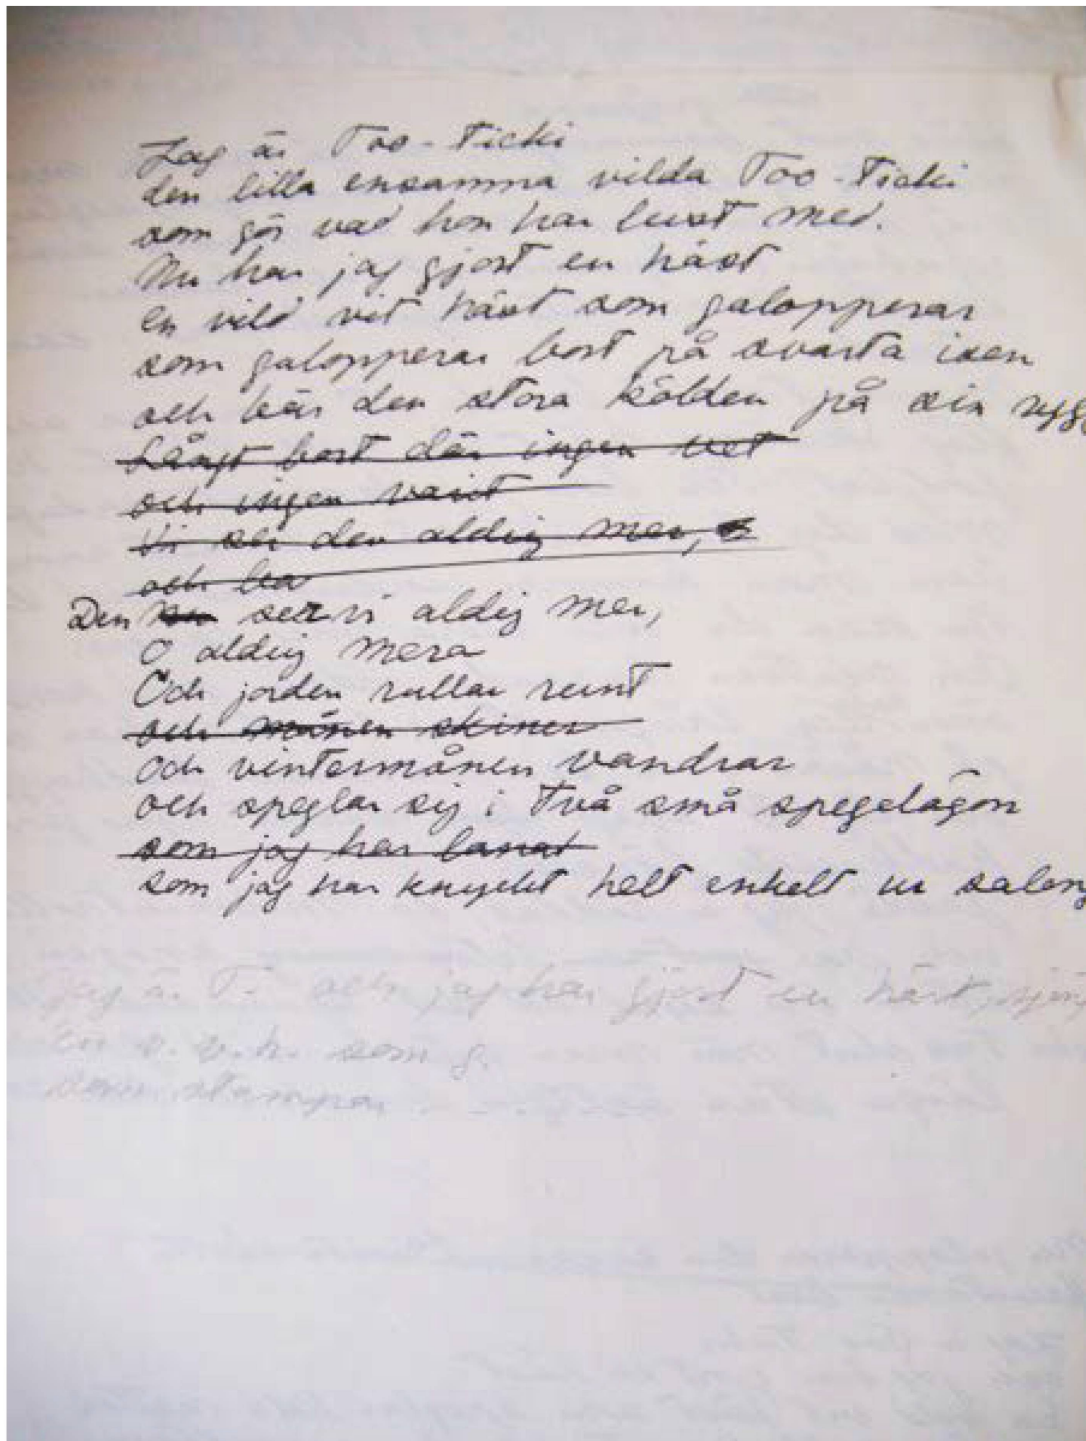 Jag är Too-Ticki
den lilla ensamma vilda Too-Ticki
som gör vad hon har lust med.
Nu har jag gjort en häst
en vild vit häst som galopperar
som galopperar bort på svarta isen
och bär den stora kölden på sin rygg
Långt bort där ingen vet
och ingen varit
Vi ser den aldrig mer,
och
Den ser vi aldrig mer,
O aldrig mera
Och jorden rullar runt
och månen skiner
Och vintermånen vandrar
och speglar sig i två små spegelögon
som jag har lånat
som jag har knyckt helt enkelt ur salong
jag är T. och jag har gjort en häst,
En v. v. h. som g.
som stampar